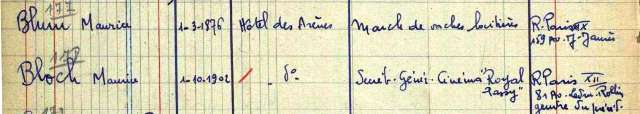 177
Blum Maurice 1-3-1876 Hôtel des Arènes March de vaches laitières R. Paris XIX
159 Av. J. Jaurès
178
Bloch Maurice 1-10.1902 d° Secrét. Génér. Cinéma "Royal Passy" R Paris XII
81 Av. Ledru Rollin
gendre du précéd.